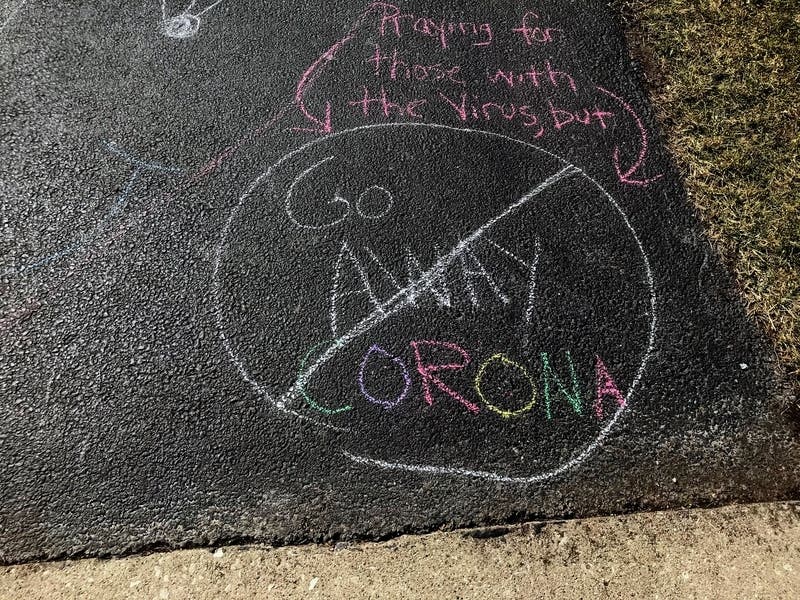 Praying for
those with
the Virus, but
Go
AWAY
CORONA